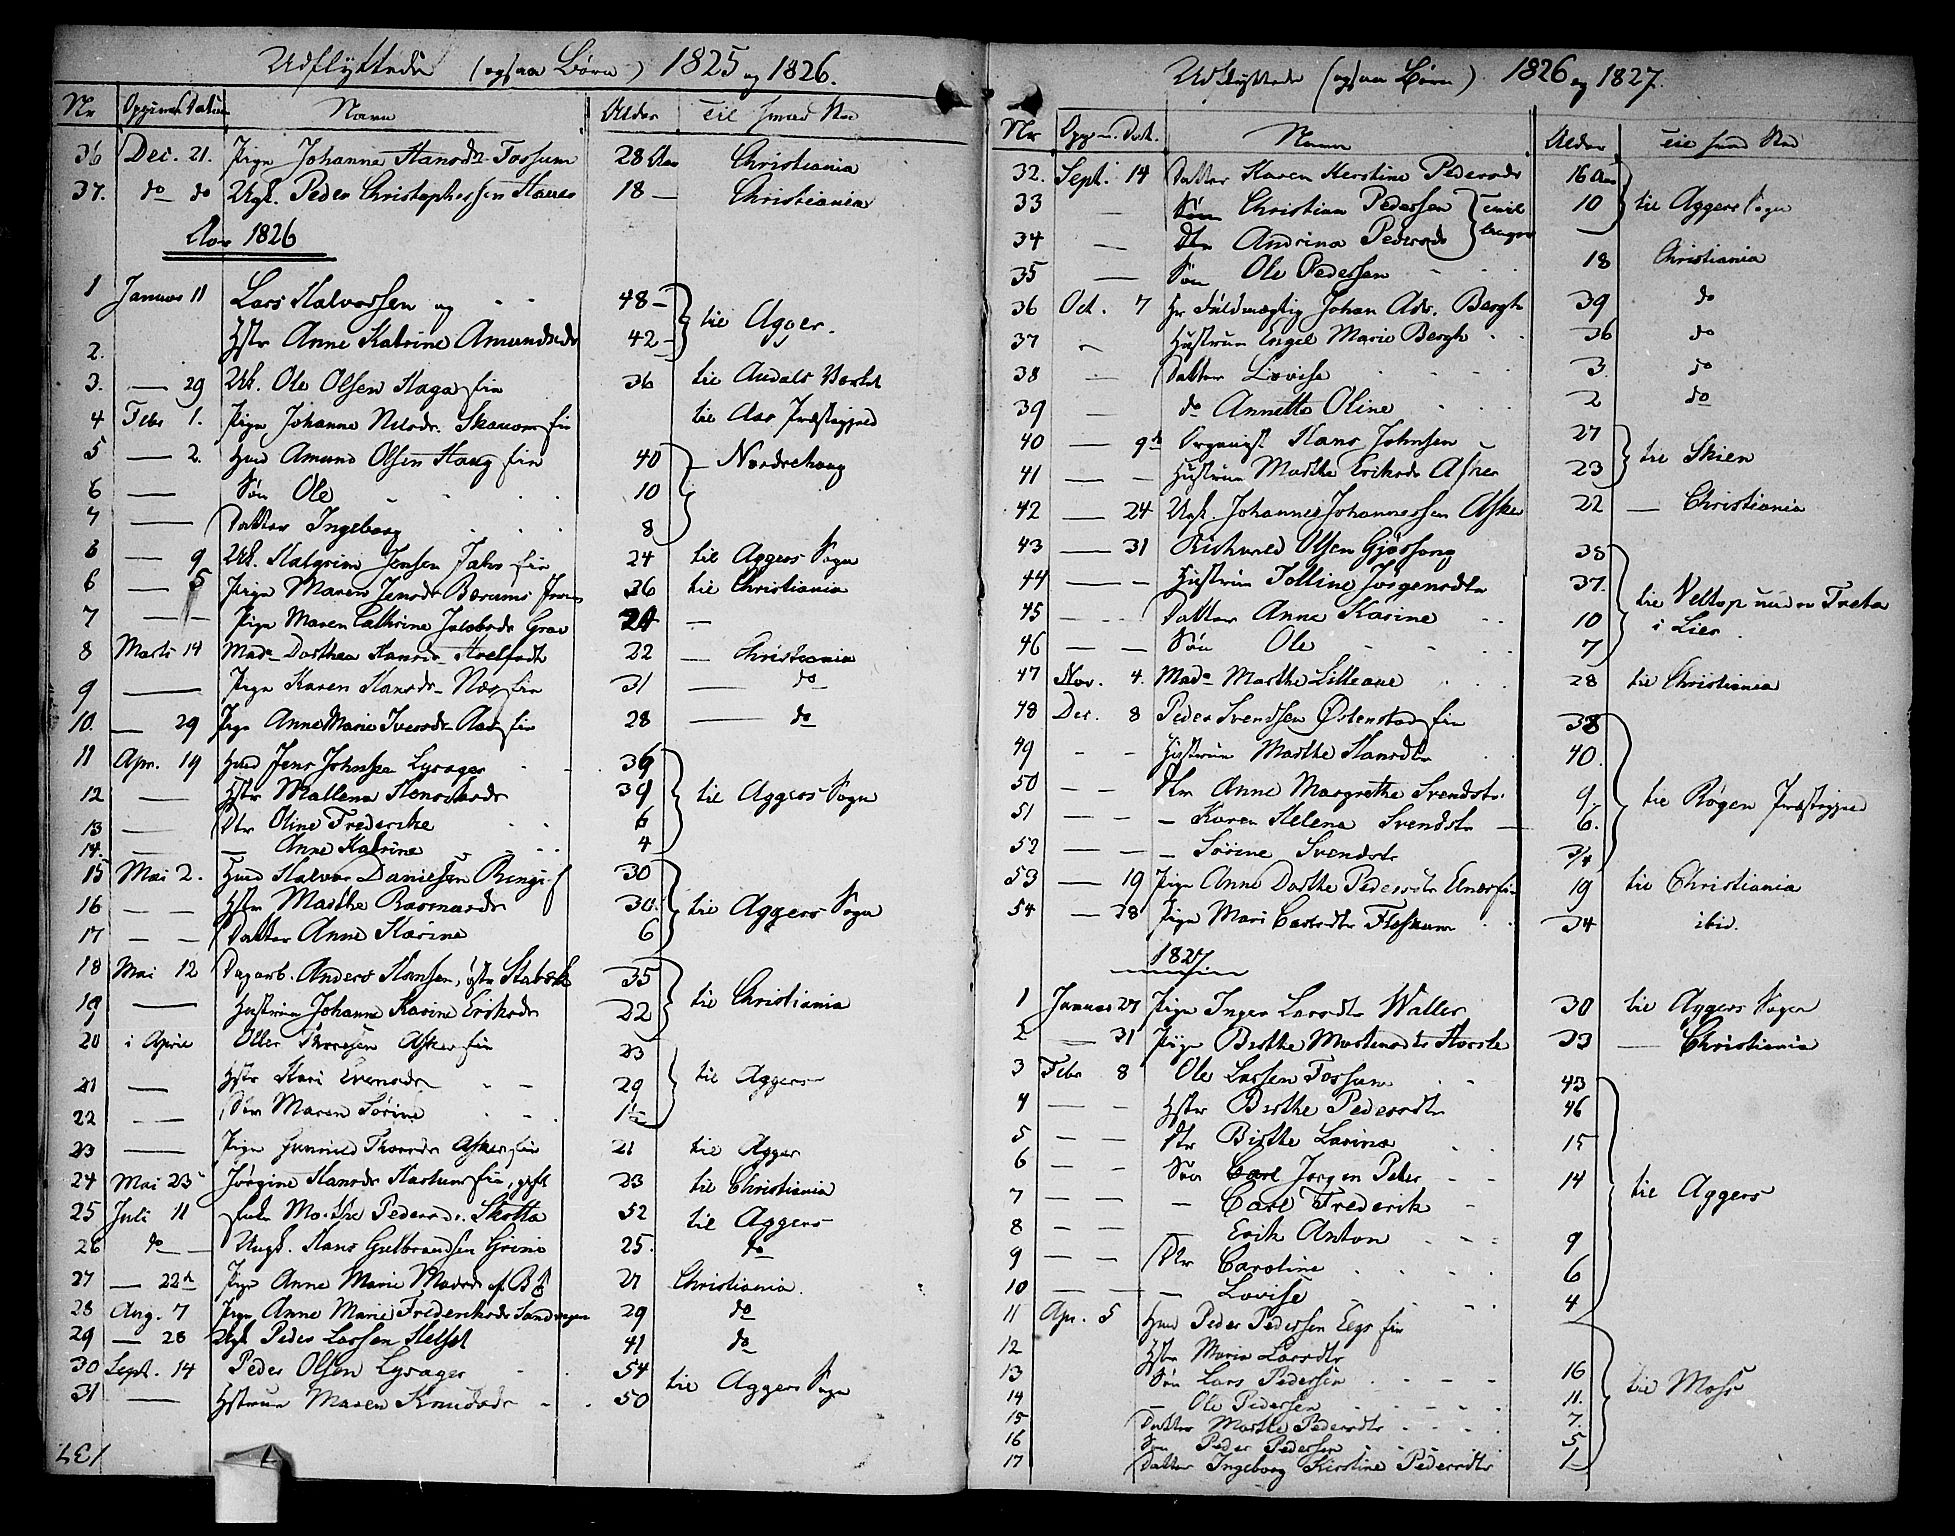 Udflyttede (ogsaa Børn) 1825 og 1826.
Nr Navn Alder Til hvad Sted
36 Dec. 21. Pige Johanne Hansdr Fossum 28 Aar Christiania
37. do do Ungk. Peder Christophersen 18 — Christiania
Aar 1826
1 Januar 11 Lars Halvorsen og 48 — til Agger.
2. Hstr Anne Katrine Amundsdr 42 —
3. — 29 Uk. Ole Olsen Haga fin 36 til Audals Værket
4 Febr 1. Pige Johanne Nilsdr. Skauom fin til Aas Præstegjeld
5 — 2. Hmd Amund Olsen Haug fin 40 — Nordrehoug
6 — Søn Ole 10
7 — Datter Ingeborg 8
8 — 9 Uk. Halgrim Jensen fin 24 til Aggers Sogn
6 — 5 Pige Maren Jensdr Bærums 26 til Christiania
7 — — Pige Maren Cathrine Jacobsdr Grav 24 —
8 Marts 14 Mad. Dorthea Hansdr 22 — Christiania
9 — Pige Karen Hansdr Næs fin 31 — do
10. — 29 Pige Anne Marie Iversdr Aas fin 28 — do
11 Apr. 19 Hmd Jens Johnsen Lysager 36 til Aggers Sogn
12 — Hstr Mallena 39
13 — Dtr Oline Frederikke 6
14. — — Anne Katrine 4
15 Mai 2. Hmd Halvor Danielsen Ringi 30 til Aggers Sogn
16 — — Hstr Marthe Rasmusdr 30.
17 — — Datter Anne Karine 6
18 Mai 12 Dagarb. Anders Hansen, Stabæk 35 til Christiania
19 — Hustrue Johanne Karine Eriksdr 22
20 i April Oller Thoresen Asker fin 23 til Aggers
21 — Hstr Kari Evensdr 29
22 — Maren Sørine 1
23 — Pige Gunnild Thoresdr Asker fin 21 til Agger
24 Mai 23 Jørgine Hansdr fin, gift 23 til Christiania
25 Juli 11 Marthe Pedersdr. Skotta 52 til Aggers
26 do — Ungk. Hans Gulbrandsen Grini 25. do
27 — 22de Pige Anne Marie Madsdr 21 Christiania.
28 Aug. 7 Pige Anne Marie Frederiksdr Sandvigen 29 do
29 — 28 Ungk Peder Larsen Helset 41 do
30 Sept. 14 Peder Olsen Lysager 54 til Aggers Sogn
31 — Hstrue Maren Knudsdr 50
137
Udflyttede (ogsaa Børn) 1826 og 1827.
Nr Navn Alder Til hvad Sted
32. Sept. 14 Datter Karen Kerstine Pedersdr 16 Aar til Aggers Sogn
33 — Søn Christian Pedersen 10
34 — Dtr Andrina Pedersdr —
35 — Søn Ole Pedersen 18 Christiania
36 Oct. 7 Hr Fuldmægtig Johan Adr. Bergh 39 do
37 Hustrue Engel Marie Bergh 36 do
38 — Datter Lovise 3 do
39 — do Annette Oline 2 do
40 — 9de Organist Hans Johnsen 27 til Skien
41 — — Hustrue Marthe Eriksdr Asker 23
42 — 24 Ungk Johannes Johannessen Asker 22 — Christiania
43 — 31 Richard Olsen Gjøssong 38 til Veltop under Tveta
44 — — Hustrue Tolline Jørgensdtr 37. i Lier.
45 — — Datter Anne Karine 10
46 — — Søn Ole 7
47 Nov. 4. Mad. Marthe Lilleaue 28 til Christiania
48 Dec. 8 Peder Svendsen Østenstad fin 38 til Røgen Præstegjeld
49 - - Hustrue Marthe Hansdtr 40.
50 — — Dtr Anne Margrethe Svendsdtr. 9
51 — — — Karen Helena Svendsdtr 6.
52 — — — Sørine Svendsdtr 3/4
53 — 19 Pige Anne Dorthe Pedersdtr fin 19 til Christiania
54 — 38 Pige Mari Carlsdtr Fleskum 34 ibid.
1827
1 Januar 27 Pige Inger Larsdtr Waller 30 til Aggers Sogn
2 — 31 Pige Birthe Mortensdtr Horsle 33 — Christiania
3 Febr 8 Ole Larsen Fossum 43 til Aggers
4 — — Hstr Birthe Pedersdtr 46
5 — — Dtr Birthe Larina 15
6 — — Søn Carl Jørgen Peter 14
7 — — — Carl Frederik
8 — — Erik Anton 9
9 — — Dtr Caroline 6
10 — — Lovise 4
11 Apr. 5 Hmd Peder Pedersen Eegs fin til Moss
12 Hstr Maria Larsdtr
13 Søn Lars Pedersen 16
14 — Ole Pedersen 11.
15 Datter Marthe Pedersdtr 7.
16 Søn Peder Pedersen 5
17 Datter Ingeborg Kirstine Pedersdtr 1